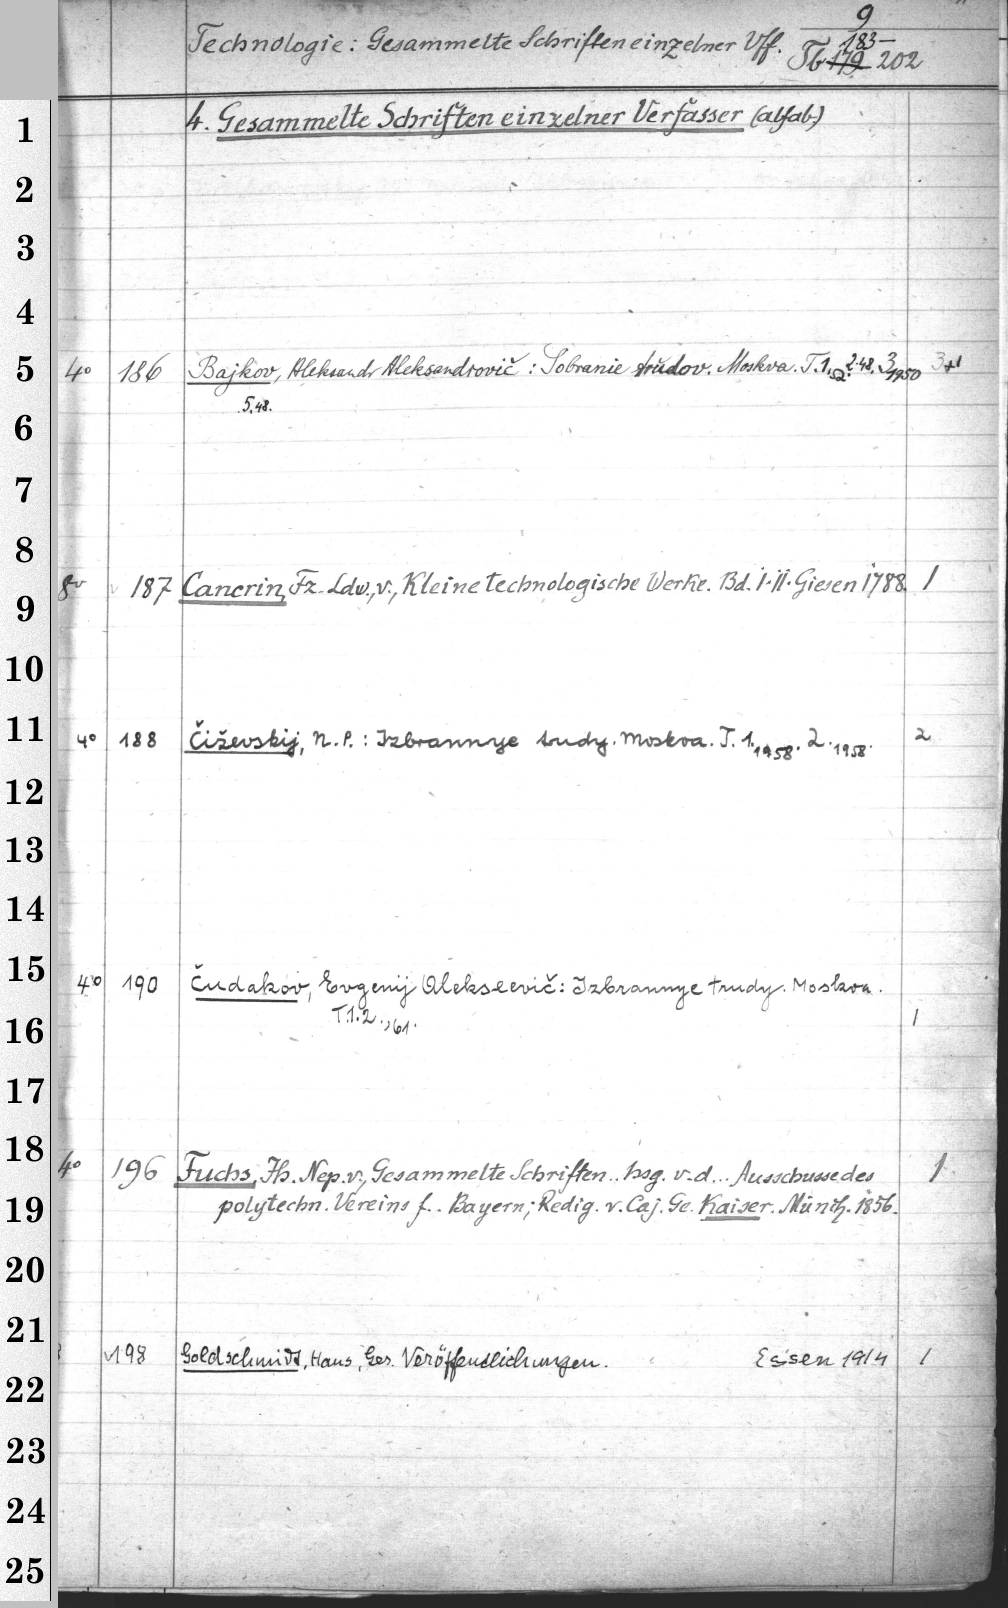 9
Technologie: Gesammelte Schriften einzelner Vff. Tb 179 183-202
1 4. Gesammelte Schriften einzelner Verfasser (alfab.)
2
3
4
5 4° 186 Bajkov, Aleksandr Aleksandrovič: Sobranie trudov. Moskva. T. 1.52. 2.48. 3 1950 3+1
5.48.
6
7
8
8° 187 Cancrin, Fz. Ldw. v., Kleine technologische Werke. Bd. I.II. Giesen 1788. 1
9
10
11 4° 188 Čiževskij, N. P.: Izbrannye trudy. Moskva. T. 1. 1958. 2. 1958. 2
12
13
14
15 4° 190 Čudakov, Evgenij Alekseevič: Izbrannye trudy. Moskva.
16 T.1.2., 61. 1
17
18 4° 196 Fuchs, Jh. Nep. v., Gesammelte Schriften.. hsg. v. d... Ausschusse des 1
19 polytechn. Vereins f.. Bayern; Redig. v. Caj. Ge. Kaiser. Münch. 1856.
20
21
198 Goldschmidt, Hans, Ges. Veröffentlichungen. Essen 1914 1
22
23
24
25